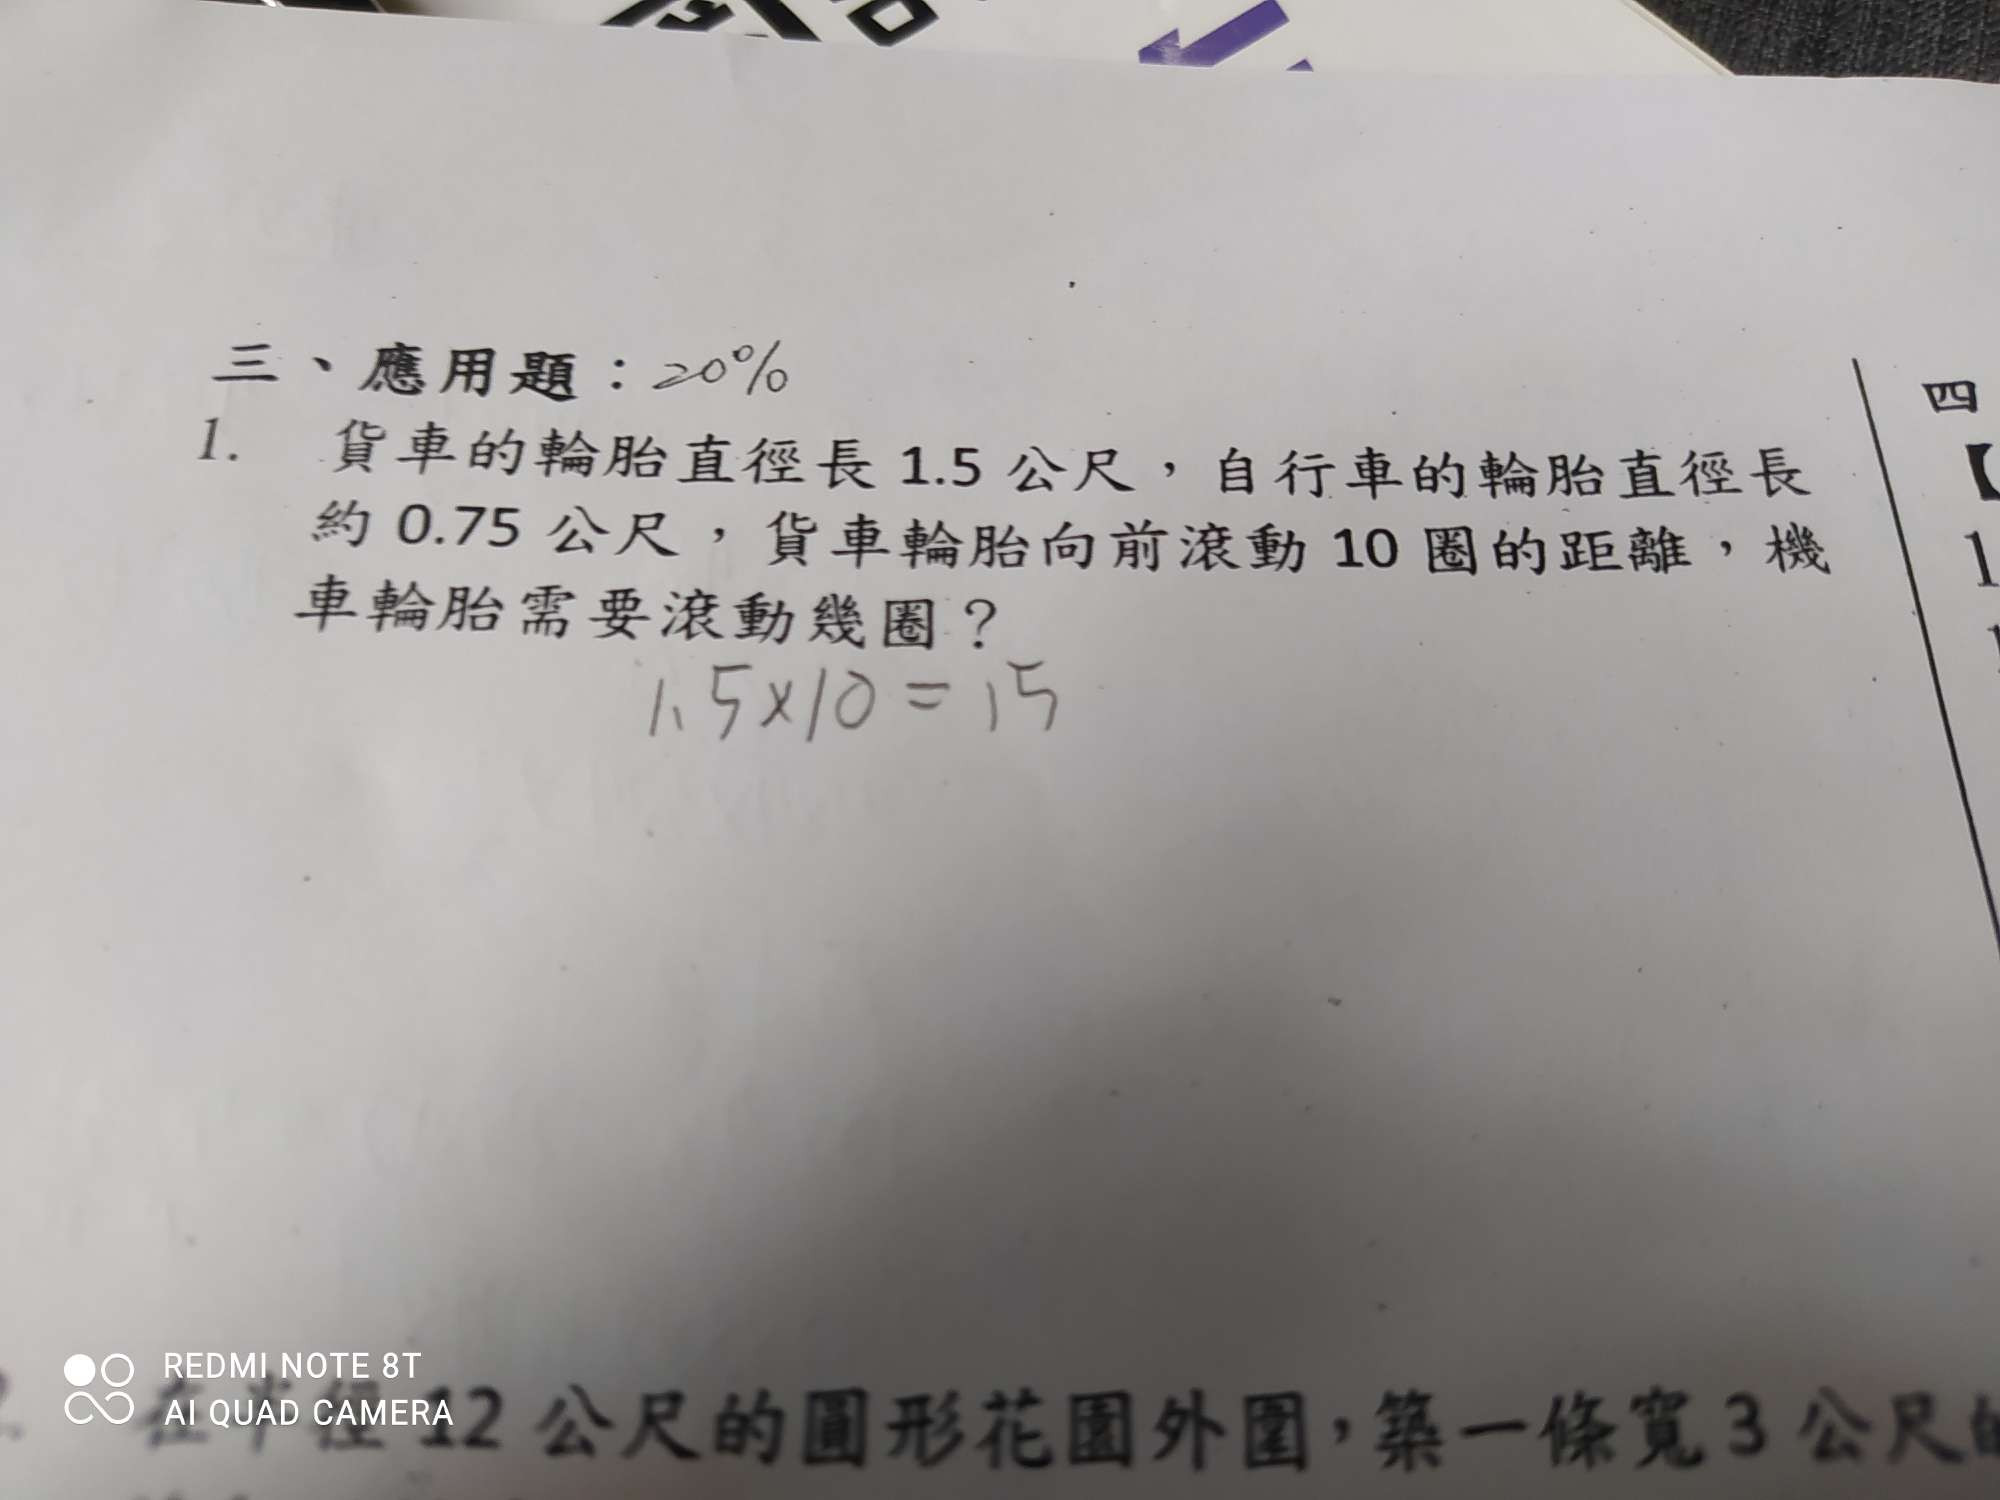 三、應用題：20%
1. 貨車的輪胎直徑長 1.5 公尺，自行車的輪胎直徑長
約 0.75 公尺，貨車輪胎向前滾動 10 圈的距離，機
車輪胎需要滾動幾圈？
1.5×10=15
在半徑 12 公尺的圓形花園外圍，築一條寬 3 公尺的
四
【
1
REDMI NOTE 8T
AI QUAD CAMERA